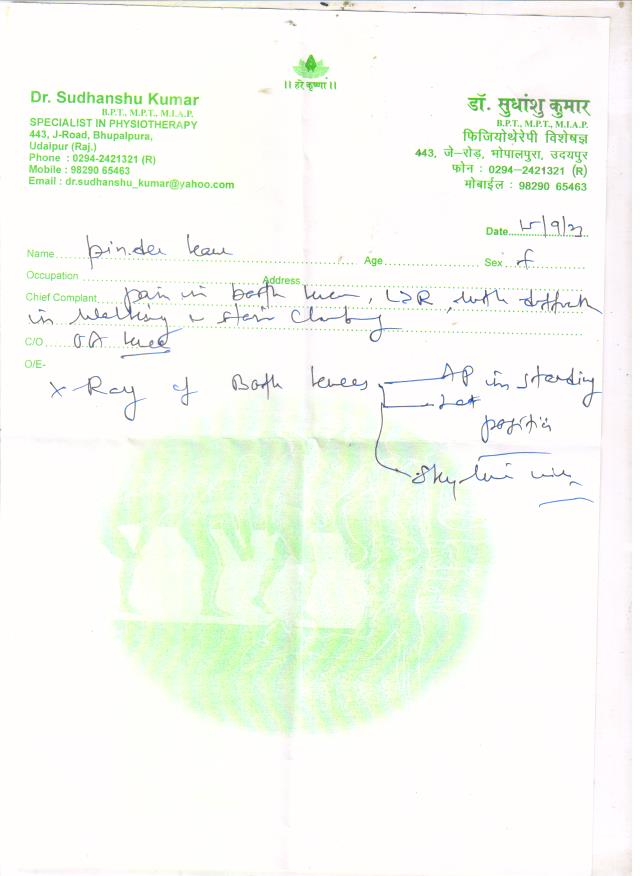 ।। हरे कृष्णा ।।
Dr. Sudhanshu Kumar
B.P.T., M.P.T., M.I.A.P.
SPECIALIST IN PHYSIOTHERAPY
443, J-Road, Bhupalpura,
Udaipur (Raj.)
Phone : 0294-2421321 (R)
Mobile : 98290 65463
Email : dr.sudhanshu_kumar@yahoo.com
डॉ. सुधांशु कुमार
B.P.T., M.P.T., M.I.A.P.
फिजियोथेरेपी विशेषज्ञ
443, जे-रोड़, भोपालपुरा, उदयपुर
फोन : 0294-2421321 (R)
मोबाईल : 98290 65463
Date 15/9/21
Name Age Sex f
Occupation Address
Chief Complant pain in both knee, L>R, with
in walking & stair climbing
C/O OA knee
O/E-
X-Ray of Both knees AP in standing
Lat position
Skyline view